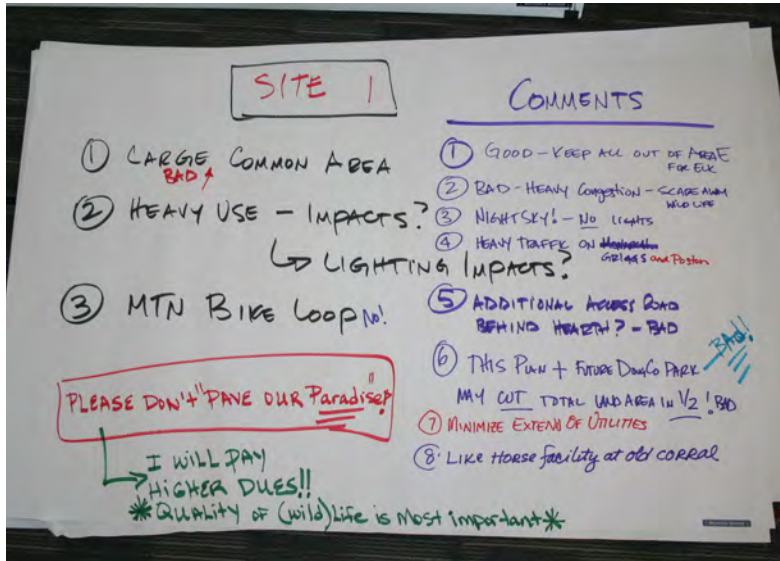 SITE 1
① LARGE COMMON AREA
BAD
② HEAVY USE – IMPACTS?
LIGHTING IMPACTS?
③ MTN BIKE LOOP NO!
PLEASE DON't "PAVE OUR Paradise"!
I WILL PAY
HIGHER DUES!!
* QUALITY OF (wild)Life is Most important *
COMMENTS
① GOOD – KEEP ALL OUT OF AREA E
FOR ELK
② BAD – HEAVY CONGESTION – SCARE AWAY
WILD LIFE
③ NIGHT SKY! – NO LIGHTS
④ HEAVY TRAFFIK ON
GRIGGS and Poston
⑤ ADDITIONAL ACCESS ROAD
BEHIND HEARTH? – BAD
BAD!!
⑥ THIS PLAN + FUTURE DOUGCO PARK
MAY CUT TOTAL LAND AREA IN 1/2! BAD
⑦ MINIMIZE EXTEND OF UTILITIES
⑧ LIKE HORSE facility at old corral